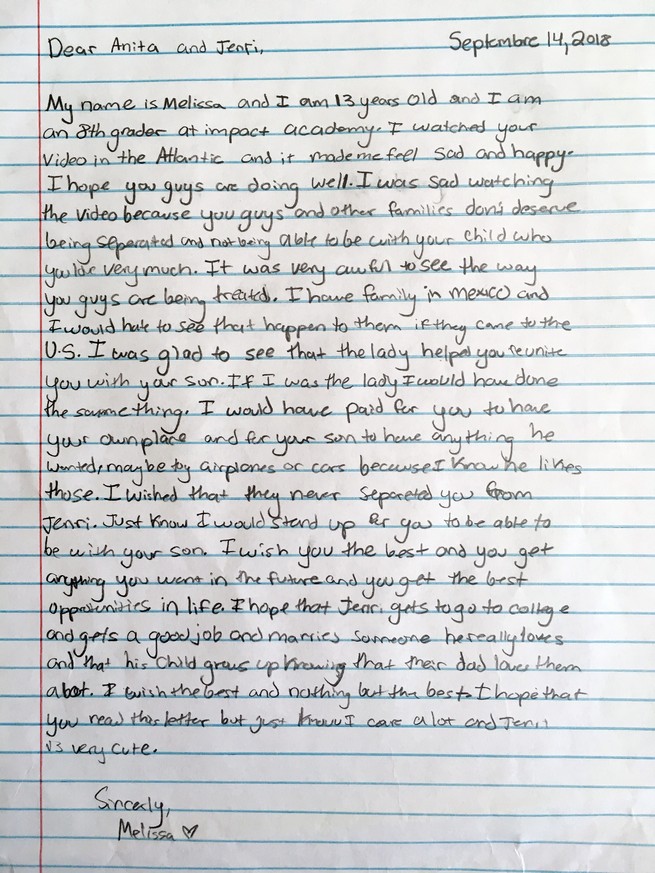 Dear Anita and Jenri, Septembre 14, 2018
My name is Melissa and I am 13 years old and I am
an 8th grader at impact academy. I watched your
video in the Atlantic and it made me feel sad and happy.
I hope you guys are doing well. I was sad watching
the video because you guys and other families don's deserve
being seperated and not being able to be with your child who
you love very much. It was very awful to see the way
you guys are being treated. I have family in mexico and
I would hate to see that happen to them if they came to the
U.S. I was glad to see that the lady helped you reunite
you with your son. If I was the lady I would have done
the same thing. I would have paid for you to have
your own place and for your son to have anything he
wanted, maybe toy airplanes or cars because I know he likes
those. I wished that they never separeted you from
Jenri. Just know I would stand up for you to be able to
be with your son. I wish you the best and you get
anything you want in the future and you get the best
opportunities in life. I hope that Jenri gets to go to college
and gets a good job and marries someone he really loves
and that his child grows up knowing that their dad loves them
alot. I wish the best and nothing but the best. I hope that
you read this letter but just know I care a lot and Jenri
is very cute.
Sincerly,
Melissa ♡